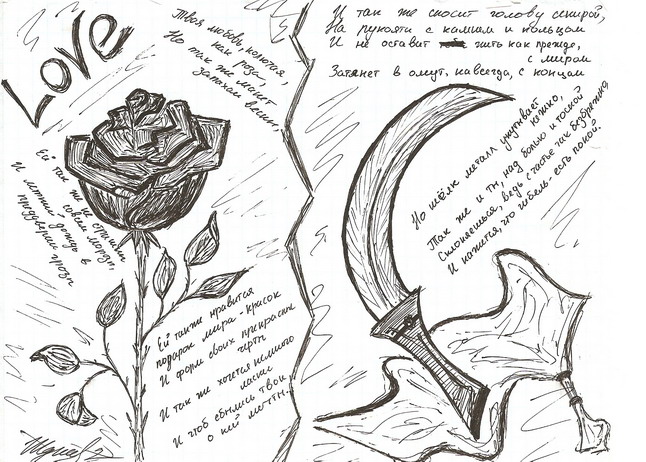 LOVE
Твоя любовь, колючая,
как роза
Но так же манит
запахам весны,
Ей так же не страшны
совсем морозы,
И мотки дождь в
преддверии грозы
Ей также нравится
подарок мира - красок
И форм своих прекрасные
черты
И так же хочется немного
ласки
И чтоб сбылись твои
о ней мечты.
И так же сносит голову секирой,
На рукояти с камнем и кольцом
И не оставит жить как прежде,
с миром
Затянет в омут, навсегда, с концом
Но шёлк металл укутывает
нежно,
Так же и ты, над болью и тоской
Склоняешься, ведь счастье так безбрежно
И кажется, что гибель - есть покой.